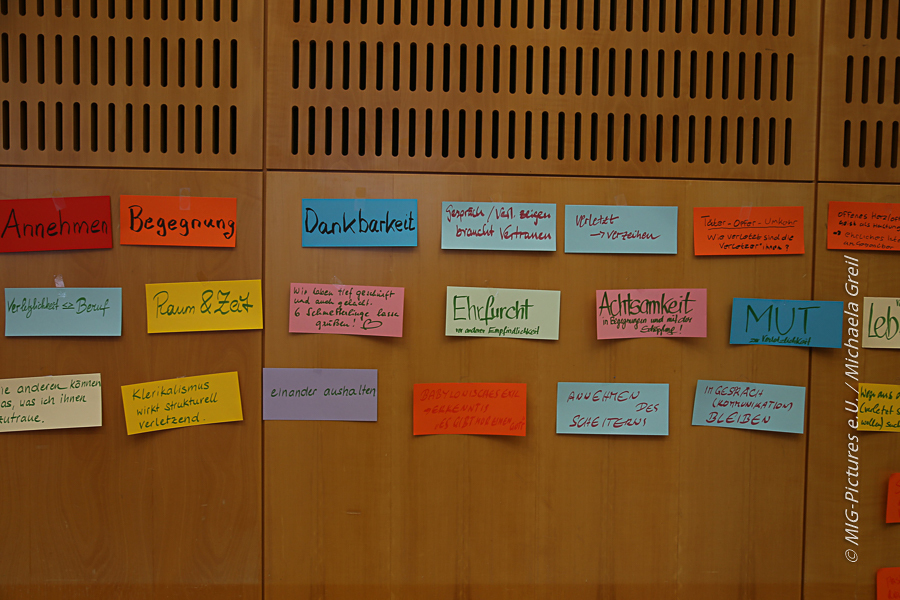 Annehmen
Begegnung
Dankbarkeit
Gespräch / Verl. zeigen
braucht Vertrauen
verletzt
→ verzeihen
Täter - Opfer - Umkehr
Wie verletzt sind die
Verletzer*innen?
Offenes Herz
Verletzlichkeit ⇔ Beruf
Raum & Zeit
Wir haben tief geschürft
und auch gelacht.
6 Schmetterlinge lassen
grüßen!
Ehrfurcht
vor anderer Empfindlichkeit
Achtsamkeit
in Begegnungen und mit der
Schöpfung!
MUT
zur Verletzlichkeit
Leb
ie anderen können
as, was ich ihnen
zutraue.
Klerikalismus
wirkt strukturell
verletzend.
einander aushalten
BABYLONISCHES EXIL
ANNEHMEN
DES
SCHEITERNS
IM GESPRÄCH
(KOMMUNIKATION)
BLEIBEN
© MIG-Pictures e.U. / Michaela Greil